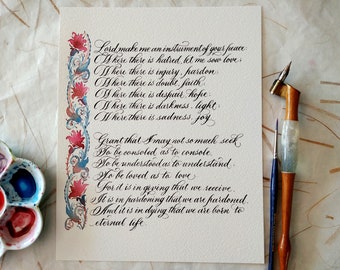 Lord, make me an instrument of your peace
Where there is hatred, let me sow love;
Where there is injury, pardon
Where there is doubt, faith
Where there is despair, hope
Where there is darkness, light
Where there is sadness, joy
Grant that I may not so much seek
To be consoled as to console
To be understood as to understand
To be loved as to love
For it is in giving that we receive
It is in pardoning that we are pardoned
And it is in dying that we are born to
eternal life